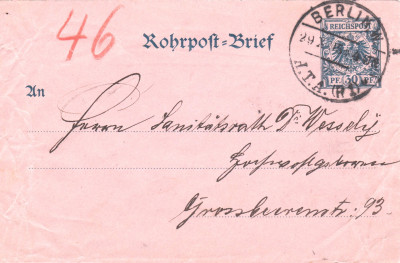 46
Rohrpost-Brief
BERLIN
REICHSPOST
29
PF. 30 PF.
H.T.A. (R1)
An
Herrn Sanitätsrath Dr. Wessely
Hochwohlgeboren
Grossbeerenstr. 93.